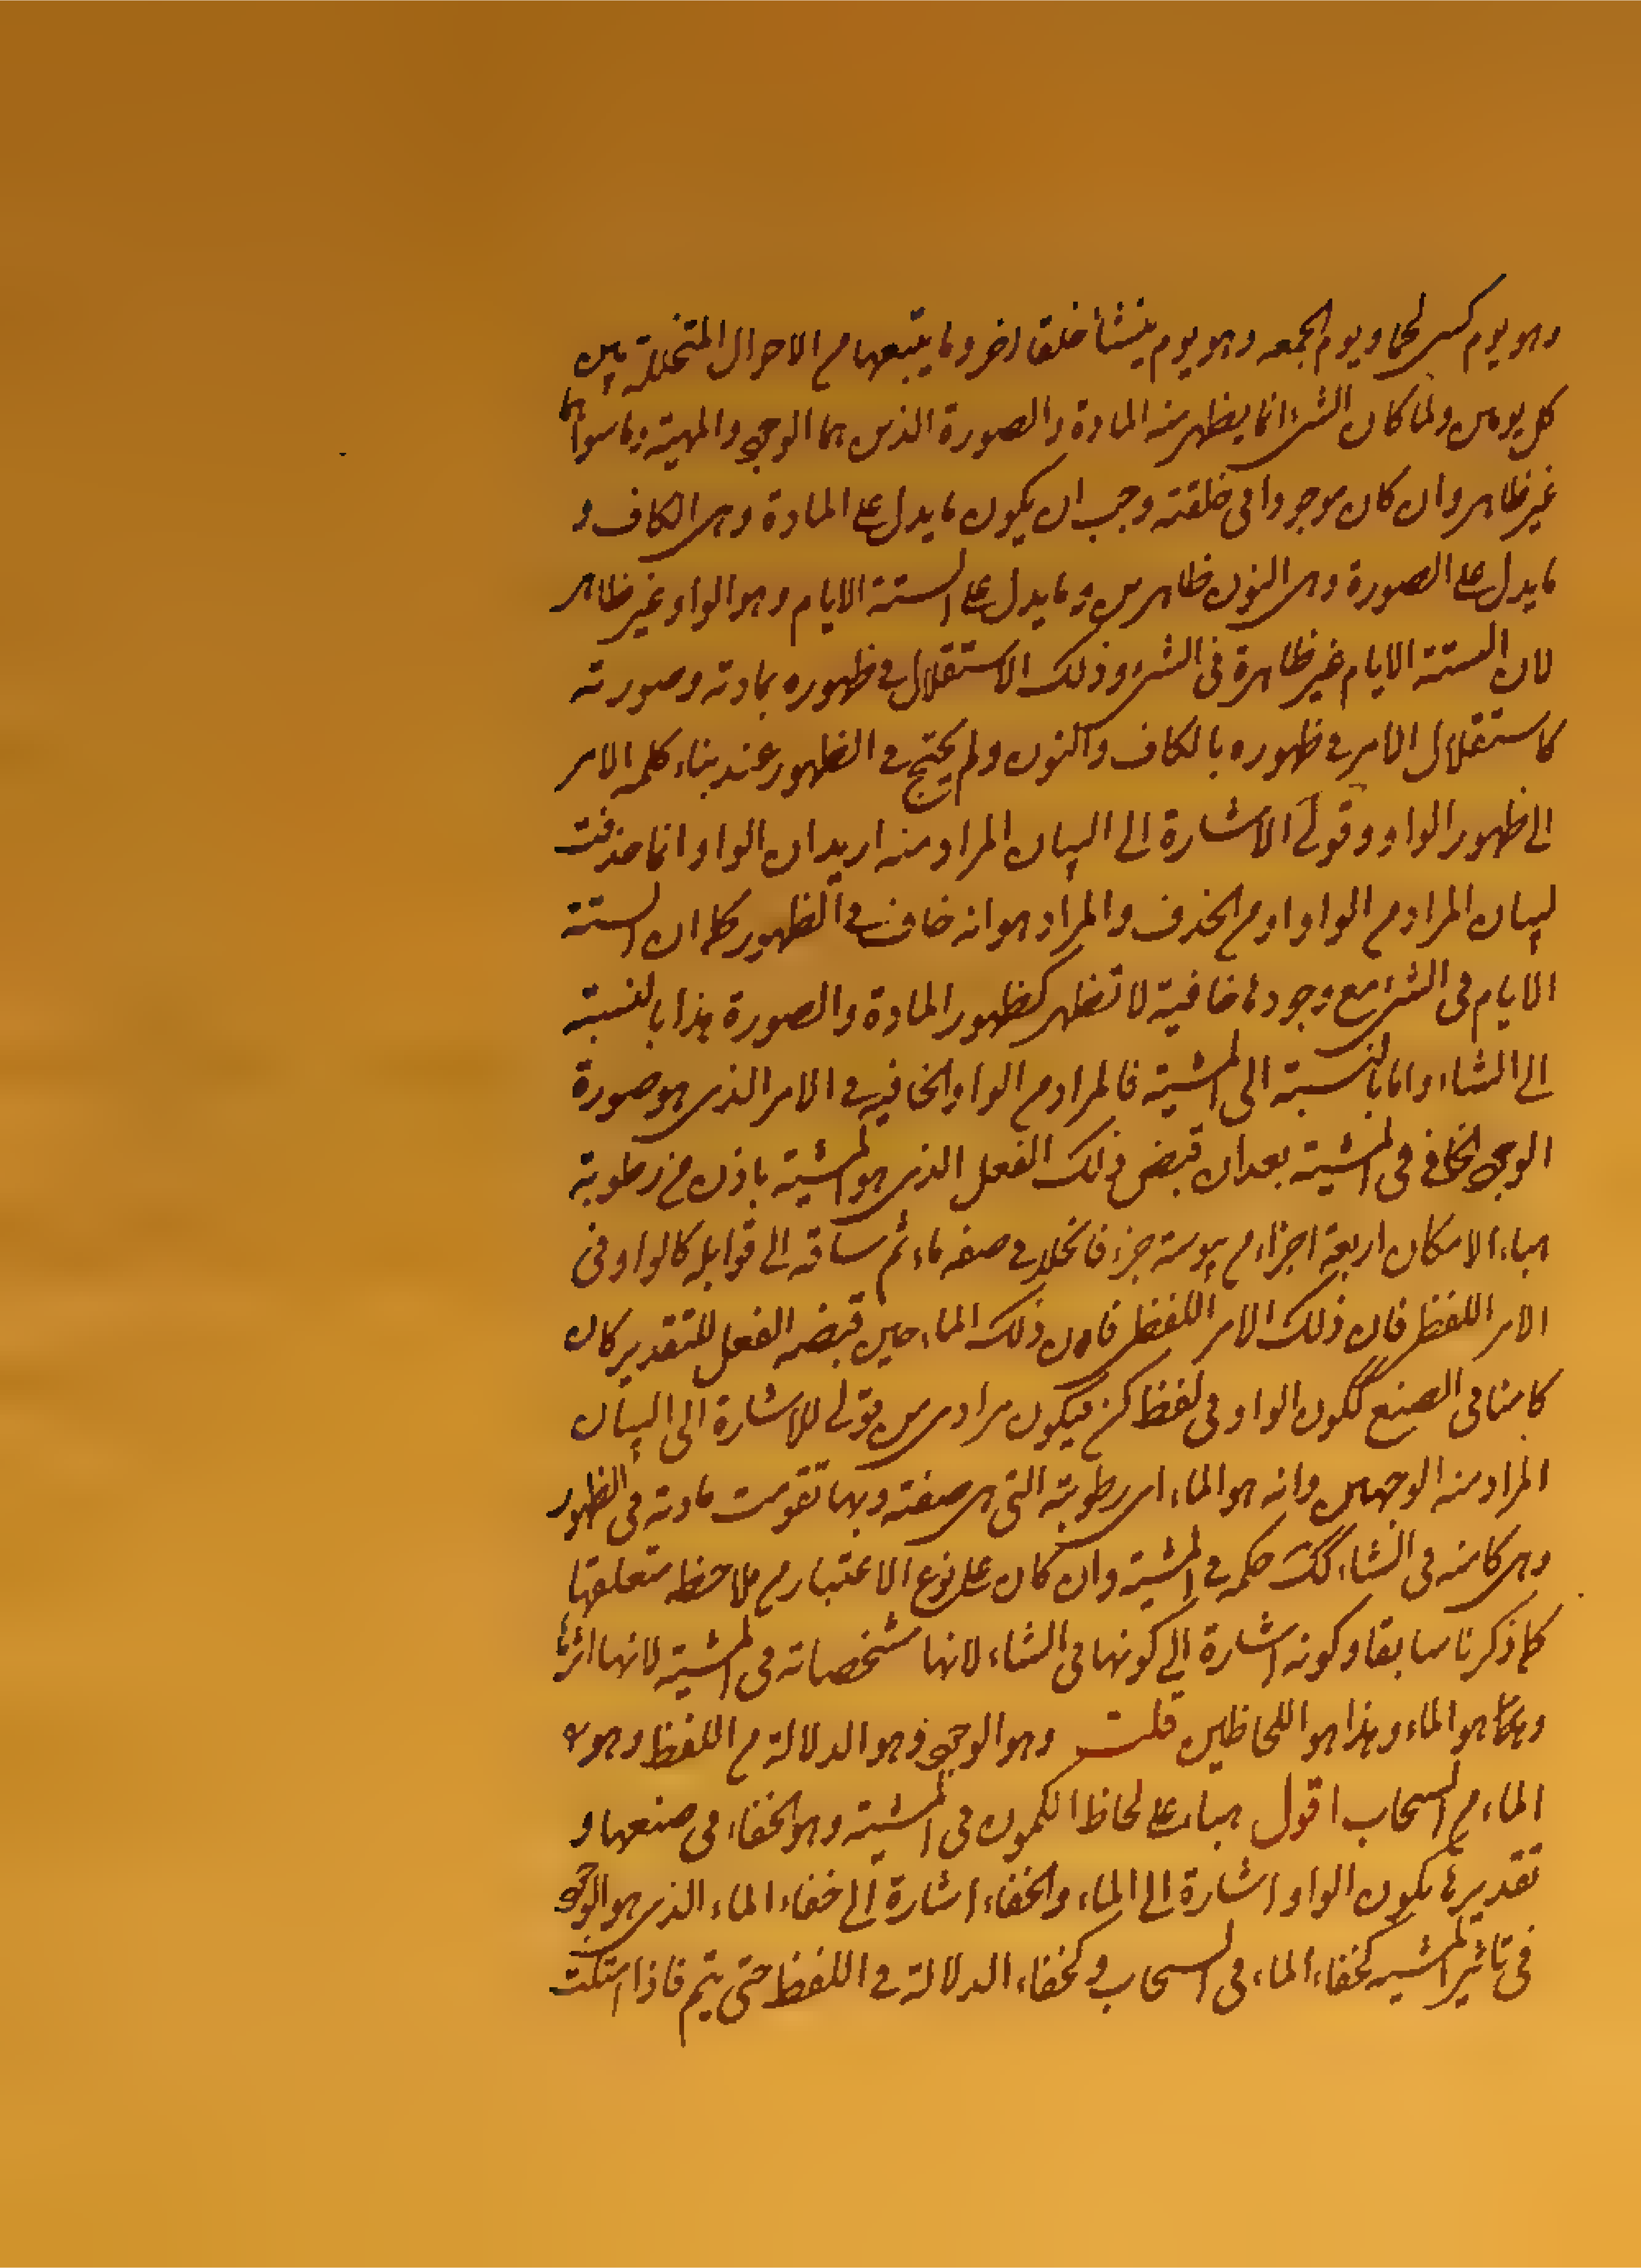 وهو يوم كسى لحما ويوم الجمعه وهو يوم ينشأ خلقا اخر وما يتبعها من الاحوال المتخللة بين
كل يومين ولما كان الشئ انما يظهر منه المادة والصورة الذين هما الوجود والمهية وما سواهما
غير ظاهر وان كان موجودا فى خلقته وجب ان يكون ما يدل على المادة وهى الكاف و
ما يدل على الصورة وهى النون ظاهرين وما يدل على الستة الايام وهو الواو غير ظاهر
لان الستة الايام غير ظاهرة فى الشئ وذلك الاستقلال فى ظهوره بمادته وصورته
كاستقلال الامر فى ظهوره بالكاف والنون ولم يحتج فى الظهور عند بناء كلمه الامر
الى ظهور الواو وقولى الاشارة الى البيان المراد منه اريد ان الواو انما حذفت
لبيان المراد من الواو او من الحذف والمراد هو انه خاف فى الظهور كما ان الستة
الايام فى الشئ مع وجودها خافية لا تظهر كظهور المادة والصورة هذا بالنسبة
الى المشاء واما بالنسبة الى المشية فالمراد من الواو الخافيه فى الامر الذى هو صورة
الوجود الخافى فى المشية بعد ان قبض ذلك الفعل الذى هو المشية باذن من رطوبة
هباء الامكان اربعة اجزاء من يبوسته جزء فانحلا فى صفه ماء ثم ساقه الى قوابله كالواو فى
الامر اللفظى فان ذلك الامر اللفظى فان ذلك الماء حين قبضه الفعل للتقدير كان
كامنا فى الصنع ككون الواو فى لفظ كن فيكون مرادى من قولى للاشارة الى البيان
المراد منه الوجهين وانه هو الماء اى رطوبته التى هى صفته وبها تقومت مادته فى الظهور
وهى كامنه فى المشاء كك حكمه فى المشية وان كان على نوع الاعتبار من ملاحظه متعلقها
كما ذكرنا سابقا وكونه اشارة الى كونها فى المشاء لانها مشخصاته فى المشية لانها اثرها
وهكذا هو الماء وهذا هو اللحاظين قلت وهو الوجود وهو الدلالة من اللفظ وهو
الماء من السحاب اقول هنا على لحاظ الكمون فى المشية وهو الخفاء فى صنعها و
تقديرها يكون الواو اشارة الى الماء والخفاء اشارة الى خفاء الماء الذى هو الوجود
فى تاثير المشيه كخفاء الماء فى السحاب وكخفاء الدلالة فى اللفظ حتى يتم فاذا